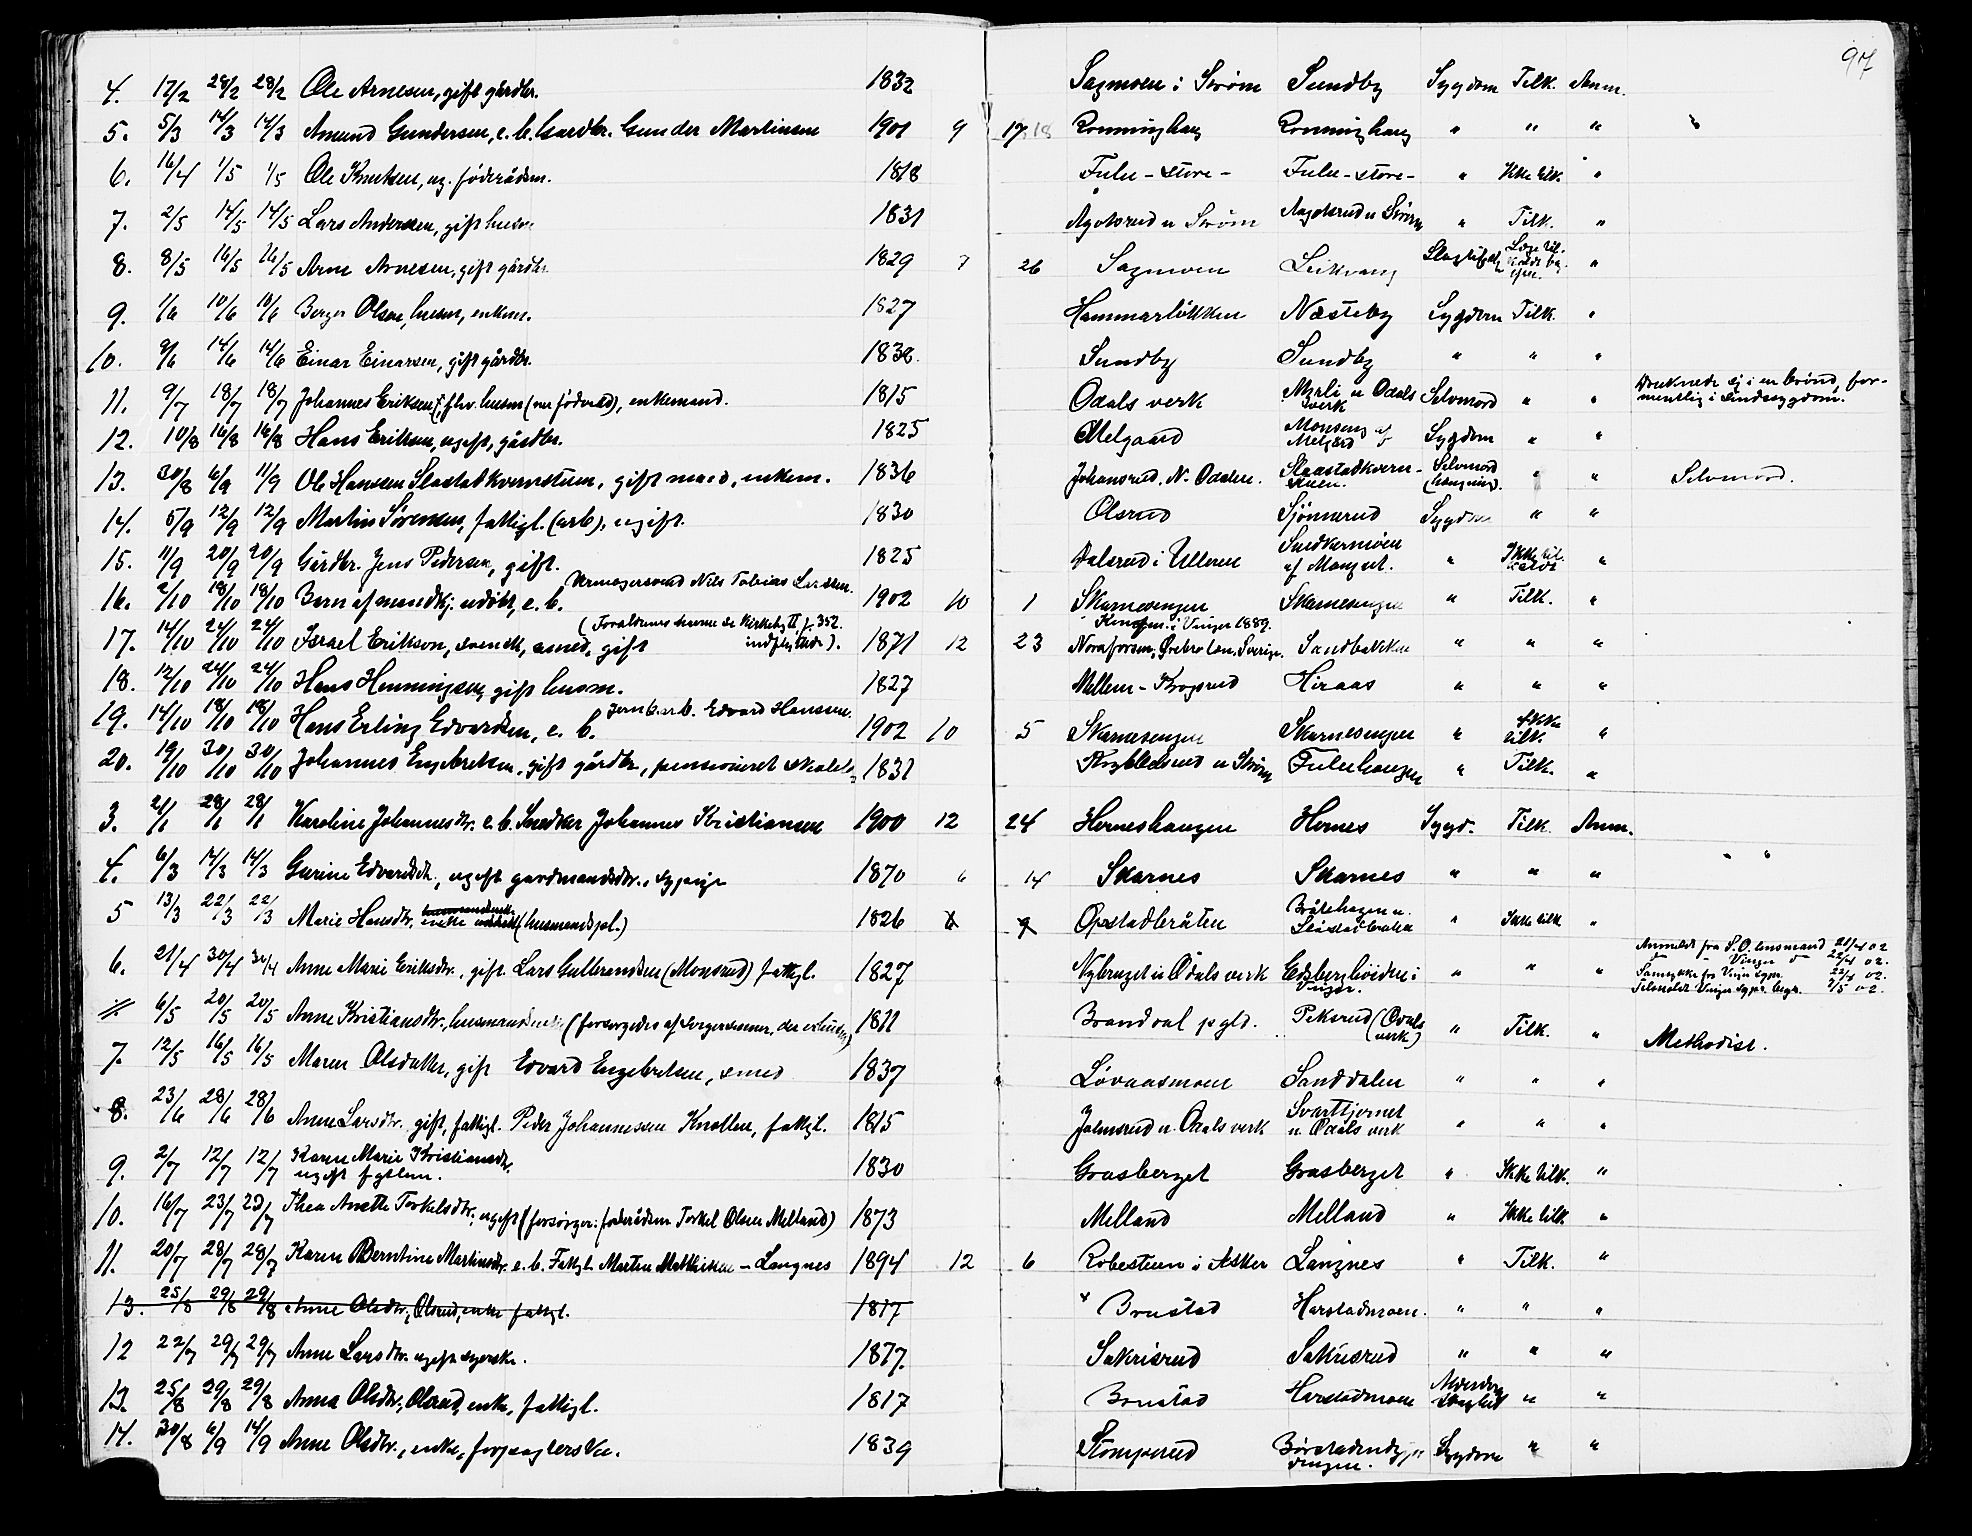 97
4. 17/2 28/2 28/2 Ole Arnesen, gift gårdbr. 1832 Sagmoen i Strøm Sundby Sygdom Tilk. Anm.
5. 5/3 14/3 14/3 Amund Gundersen, e. b. Gardbr. Gunder Martinsen 1901 9 17 18 Ronninghaug Ronninghaug " " "
6. 16/4 1/5 1/5 Ole Knutsen, ug. föderådsm. 1818 Fulu - store - Fulu - store - " Ikke tilk. "
7. 2/5 14/5 14/5 Lars Andersen, gift husm 1831 Agotsrud u Strøm Aagotsrud u Strøm " Tilk. "
8. 8/5 16/5 16/5 Arne Arnesen, gift gårdbr. 1829 7 26 Sagmoen Leikvang Slagtilfælde "
9. 1/6 10/6 10/6 Berger Olsen, husm, enkem. 1827 Hammarløkken Næsteby Sygdom Tilk. "
10. 9/6 14/6 14/6 Einar Einarsen, gift gårdbr. 1838. Sundby Sundby " " "
11. 9/7 18/7 18/7 Johannes Eriksen, fhv. husm (nu föderåd), enkemand. 1815 Odals verk Myrli u Odals verk Selvmord " " Druknede sig i en brönd, for-
mentlig i sindssygdom.
12. 10/8 16/8 16/8 Hans Eriksen, ugift, gårdbr. 1825 Melgaard Monseng af Melgård Sygdom " "
13. 30/8 6/9 11/9 Ole Hanssen Slaastadkvernstuen, gift mand, enkem. 1836 Johansrud, N. Odalen. Slaastadkvern-
stuen. Selvmord (hængning). " " Selvmord.
14. 5/9 12/9 12/9 Martin Sörensen, fattigl. (arb), ugift. 1830 Olsrud Sjönnerud Sygdom " "
15. 11/9 20/9 20/9 Gårdbr. Jens Pedersen, gift. 1825 Dalsrud i Ullern Snedkermoen
af Mangset. " Ikke til-
kaldt "
16. 2/10 18/10 18/10 Barn af mandkj. udöbt, e. b. Nils Tobias Larssen. 1902 10 1 Skarnesengen Skarnesengen " Tilk. "
17. 14/10 24/10 24/10 Israel Erikson, svensk, smed, gift (Forældrenes navne se Kirkebog II p. 352.
indfly.). 1871 12 23 Konfirm. i Vinger 1889.
Noraforsen, Örebro län, Sverige. Sandbakken " " "
18. 12/10 24/10 24/10 Hans Henningsen gift husm. 1827 Mellem - Krogsrud Hiraas " " "
19. 14/10 18/10 18/10 Hans Erling Edvardsen, e. b. Jernb.arb. Edvard Hanssen. 1902 10 5 Skarnesengen Skarnesengen " Ikke
tilk. "
20. 19/10 30/10 30/10 Johannes Engebretsen, gift gårdbr., pensioneret skolel. 1831 u Strøm Fuluhaugen " Tilk. "
3. 21/1 28/1 28/1 Karoline Johannesdtr. e. b. Snedker Johannes Kristiansen 1900 12 24 Herneshaugen Hernes Sygd. Tilk. Anm.
4. 6/3 14/3 14/3 Gurine Edvardsdtr., ugift gardmandsdtr., sypige 1870 6 14 Skarnes Skarnes " " " " "
5 13/3 22/3 22/3 Marie Hansdtr. (husmandspl.) 1826 Opstadbråten Bråtehagen u. " Ikke tilk "
6. 21/4 30/4 30/4 Anne Marie Eriksdtr., gift. Lars Gulbrandsen (Monsrud) fattigl. 1827 Nybruget u Odals verk Edsberghöiden i
Vinger. " " " Anmeldt fra S. O. lensmand 21/4 02
" " Vinger " 22/4 02.
Samtykke fra Vinger sogn. 22/4 02.
Tilmeldt Vinger sogn. begr. 2/5 02.
" 6/5 20/5 20/5 Anne Kristiansdtr., husmandsenke (forsørgedes af svigersønnen, der) 1811 Brandval pgld. Peksrud (Odals
verk) " Tilk. " Methodist.
7. 12/5 16/5 16/5 Maren Olsdatter, gift Edvard Engebretsen, smed 1837 Lövaasmoen Sanddalen " " "
8. 23/6 28/6 28/6 Anne Larsdtr. gift, fattigl. Peder Johannessen Knollen, fattigl. 1815 Jalmsrud u. Odals verk Svarttjernet
u Odals verk " " "
9. 2/7 12/7 12/7 Karen Marie Kristiansdtr.
ugift fattiglem. 1830 Grasberget Grasberget " Ikke tilk. "
10. 16/7 23/7 23/7 Thea Anette Torkelsdtr., ugift (forsörger: föderådsm Torkel Olsen Melland) 1873 Melland Melland " Ikke tilk "
11. 20/7 28/7 28/7 Karen Berntine Martinsdtr. e. b. Fattigl. Martin Mathisen - Langnes 1894 12 6 Robesteen i Asker Langnes " Tilk. "
13. 25/8 29/8 29/8 Anne Olsdtr, Olsrud, enke fattigl. 1817 Brustad Harstadmoen. " " "
12 22/7 29/7 29/7 Anne Larsdtr. ugift syerske. 1877. Sakrisrud Sakrisrud " " "
13. 25/8 29/8 29/8 Anna Olsdtr., Olsrud, enke, fattigl. 1817 Brustad Harstadmoen Alderdoms-
svaghed " "
14. 30/8 6/9 14/9 Anne Olsdtr., enke, forpagterske. 1839 Stomperud Sygdom " "